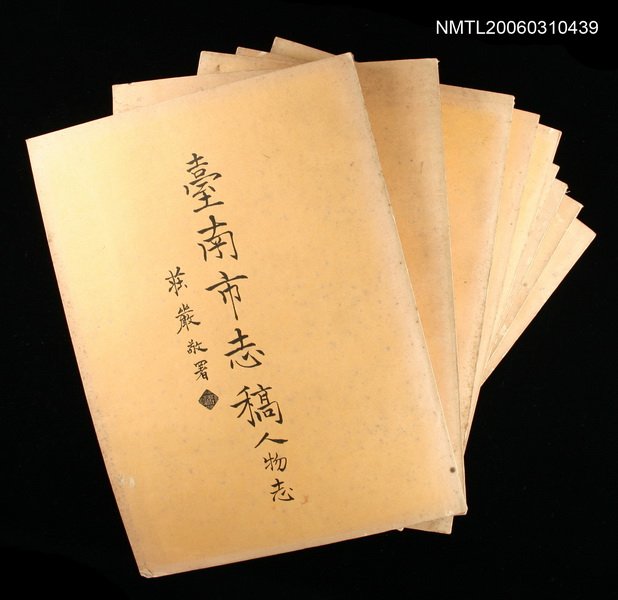 NMTL20060310439
臺南市志稿人物志
莊嚴敬署